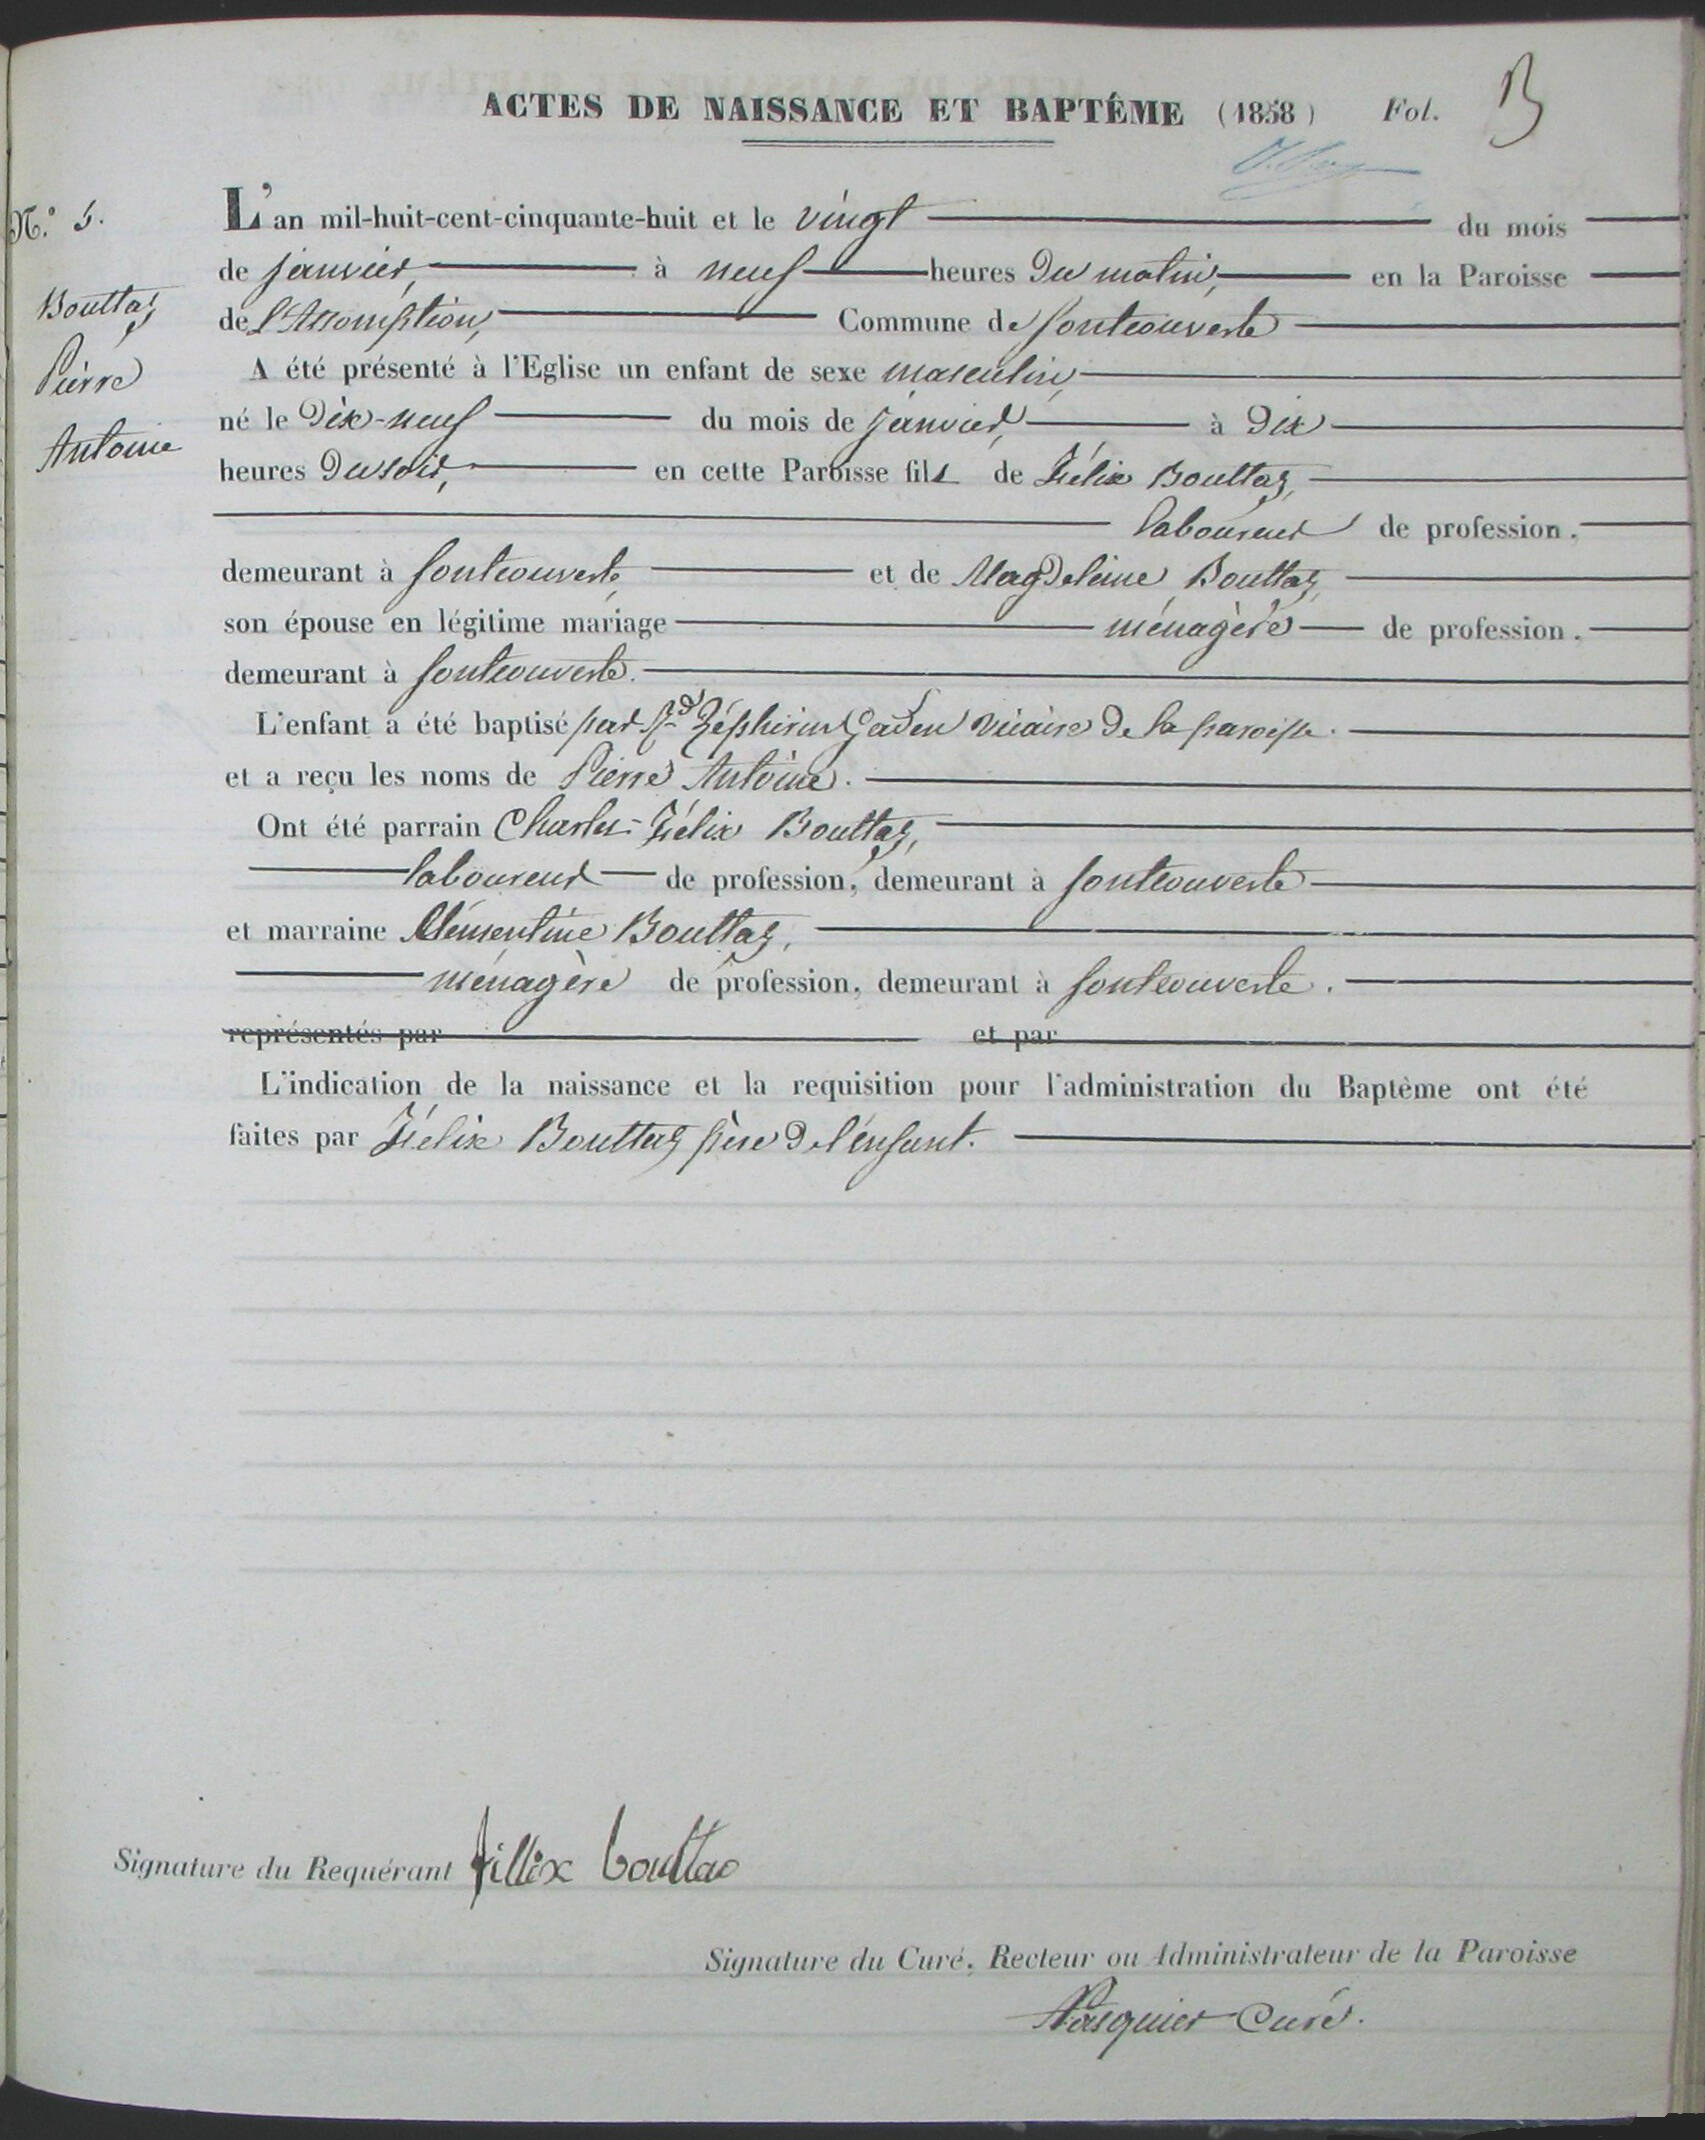 ACTES DE NAISSANCE ET BAPTÊME (1858) Fol. 13
N.° 5.
Bouttaz
Pierre
Antoine
L'an mil-huit-cent-cinquante-huit et le vingt du mois
de janvier, à neuf heures du matin, en la Paroisse
de L'Assomption, Commune de fontcouverte
A été présenté à l'Eglise un enfant de sexe masculin,
né le dix-neuf du mois de janvier, à dix
heures du soir, en cette Paroisse fils de Félix Bouttaz,
laboureur de profession.
demeurant à fontcouverte, et de Magdeleine Bouttaz,
son épouse en légitime mariage ménagère de profession.
demeurant à fontcouverte.
L'enfant a été baptisé par Rd Zéphirin Gaden vicaire de la paroisse.
et a reçu les noms de Pierre Antoine.
Ont été parrain Charles-Félix Bouttaz,
laboureur de profession, demeurant à fontcouverte
et marraine Clémentine Bouttaz,
ménagère de profession, demeurant à fontcouverte.
représentés par et par
L'indication de la naissance et la requisition pour l'administration du Baptème ont été
faites par Félix Bouttaz père de l'enfant.
Signature du Requérant fillix bouttaz
Signature du Curé, Recteur ou Administrateur de la Paroisse
Pasquier Curé.